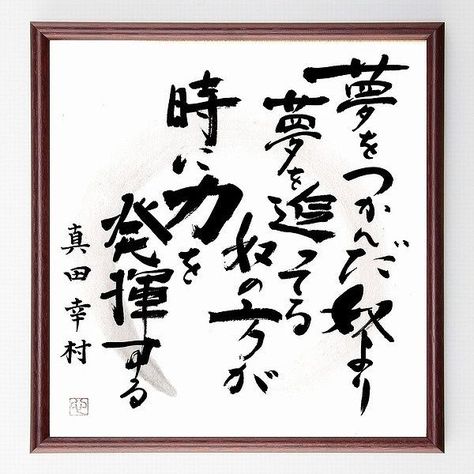 夢をつかんだ奴より
夢を追ってる
奴の方が
時に力を
発揮する
真田幸村